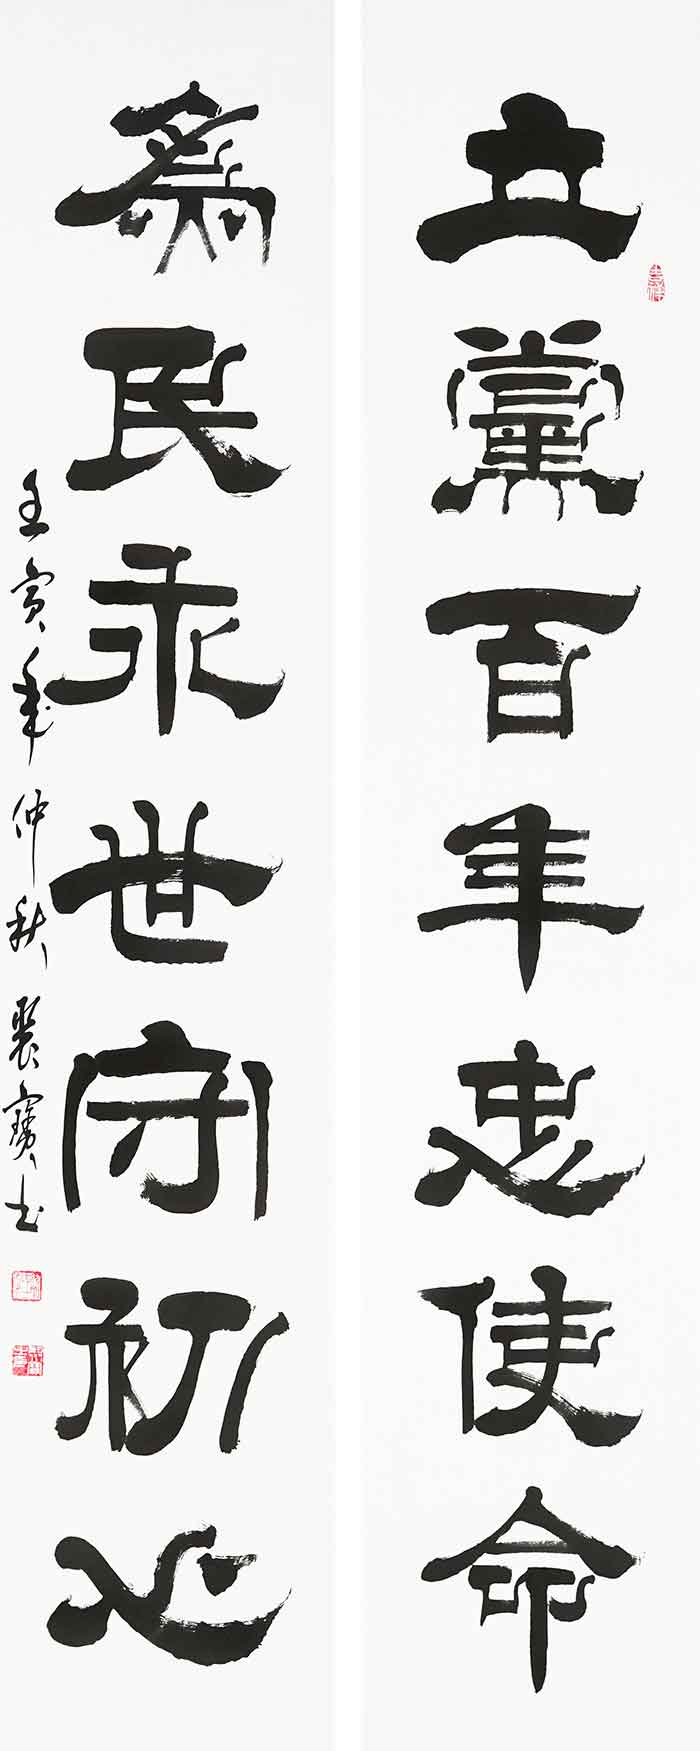 立黨百年忠使命
為民永世守初心
壬寅年仲秋裴寶書